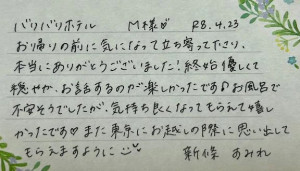 バリバリホテル M様♡ R8.4.23
お帰りの前に気になって立ち寄って下さり、
本当にありがとうございました!終始優しくて
穏やか、お話するのが楽しかったです♪お風呂で
不安そうでしたが、気持ち良くなってもらえて嬉し
かったです♡また東京にお越しの際に思い出して
もらえますように
新條 すみれ